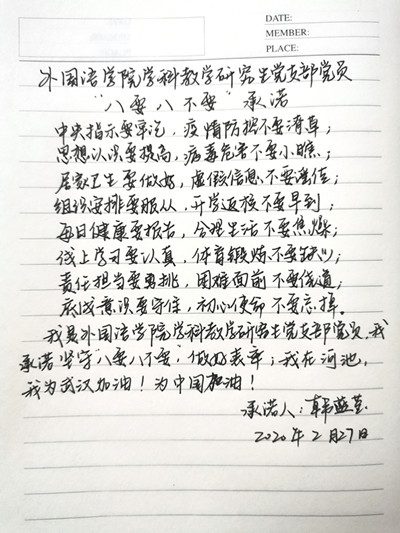 DATE:
MEMBER:
PLACE:
外国语学院学科教学研究生党支部党员
"八要八不要"承诺
中央指示要牢记，疫情防控不要潦草；
思想认识要提高，病毒危害不要小瞧；
居家卫生要做好，虚假信息不要轻信；
组织安排要服从，开学返校不要早到；
每日健康要报告，合理生活不要焦燥；
线上学习要认真，体育锻炼不要缺少；
责任担当要勇挑，困难面前不要绕道；
底线意识要守住，初心使命不要忘掉。
我是外国语学院学科教学研究生党支部党员，我
承诺坚守"八要八不要"，做好表率；我在河池，
我为武汉加油！为中国加油！
承诺人：韩
2020年2月27日